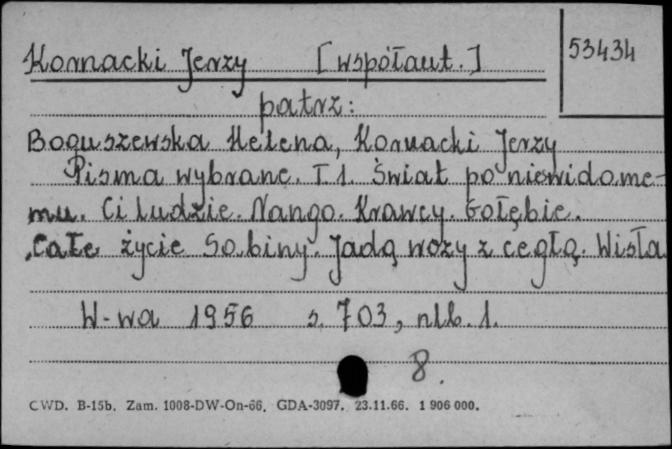 Kornacki Jerzy [współaut.]
53434
patrz:
Boguszewska Helena, Kornacki Jerzy
Pisma wybrane. T 1. Świat po niewidome-
mu. Ci ludzie. Nango. Krawcy. Gołębie.
Całe życie Sabiny. Jadą wozy z cegłą. Wisła
W-wa 1956 s. 703, nlb. 1.
8.
CWD. B-15b. Zam. 1008-DW-On-66. GDA-3097. 23.11.66. 1 906 000.